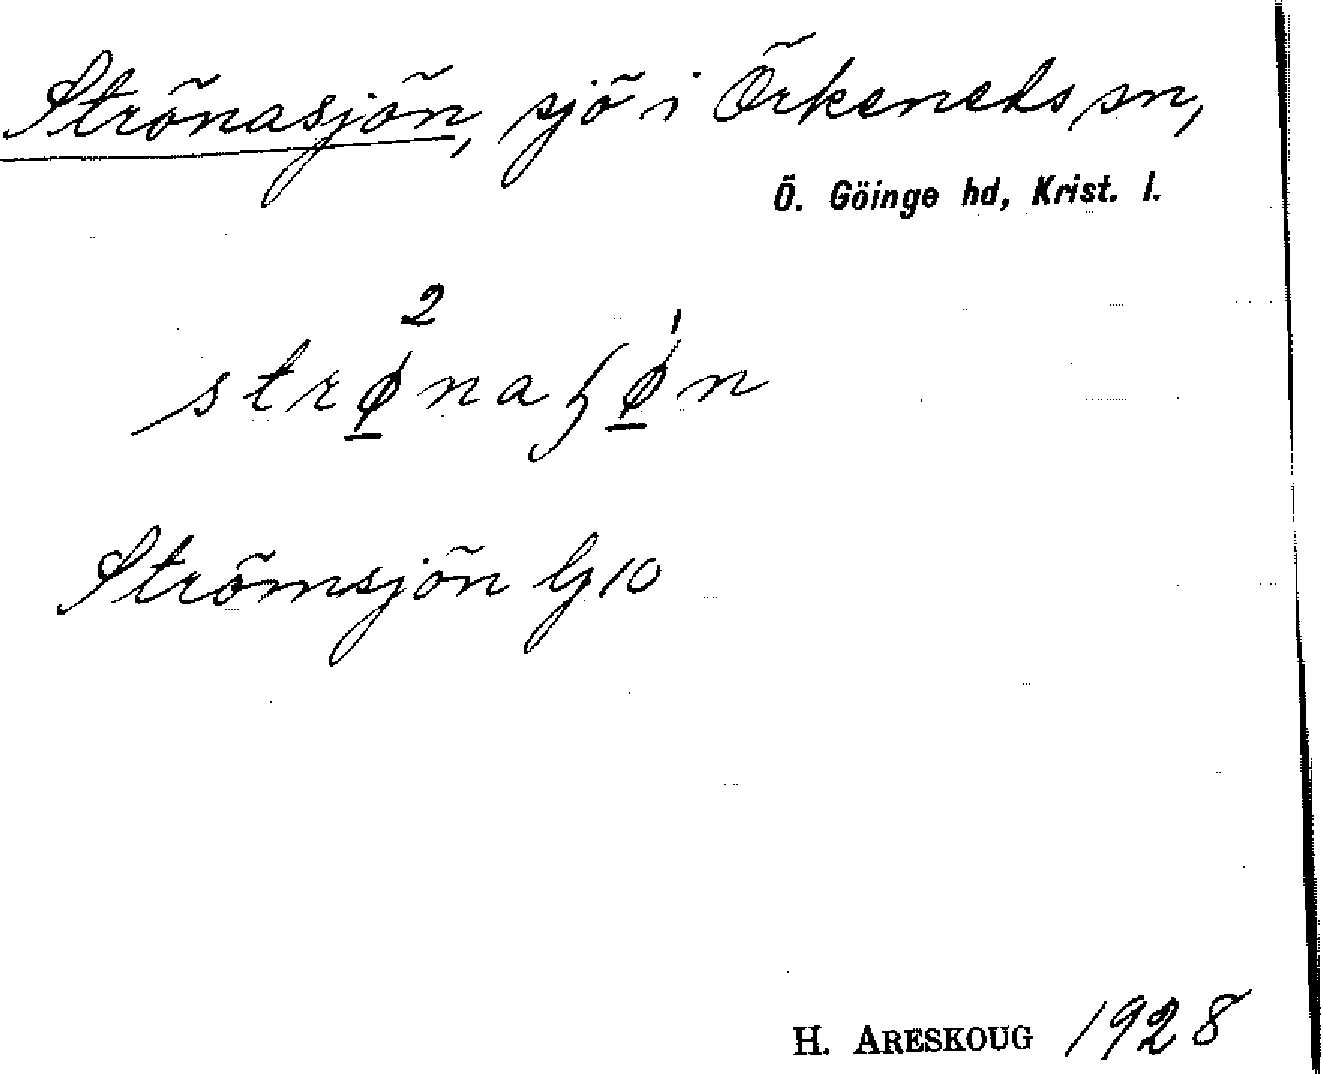 Strönasjön, sjö i Örkeneds sn,
Ö. Göinge hd, Krist. l.
2 1
strø̱naʃø̱n
Strömsjön G10
H. ARESKOUG 1928